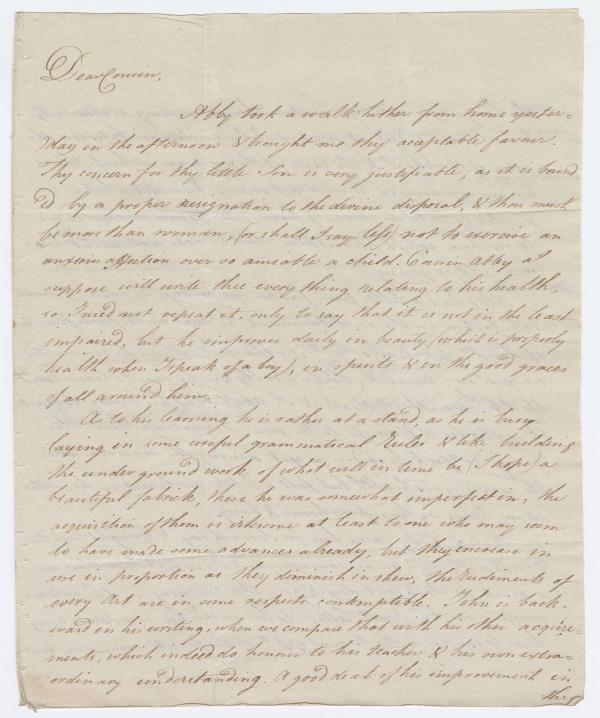 Dear Cousin,
Abby took a walk hither from home yester-
day in the afternoon & brought me thy acceptable favour.
Thy concern for thy little Son is very justifiable, as it is bound
'd by a proper resignation to the divine disposal, & thou must
be more than woman, (or shall I say less) not to exercise an
anxious affection over so ameable a child. Cousin Abby I
suppose will write thee every thing relating to his health
so I need not repeat it, only to say that it is not in the least
impaired, but he improves daily in beauty (which is properly
health when I speak of a boy), in spirits & in the good graces
of all around him.
As to his learning he is rather at a stand, as he is busy
laying in some useful grammatical Rules & like building
the under ground work of what will in time be (I hope) a
beautiful fabrick, these he was somewhat imperfect in, the
acquisition of them is irksome at least to one who may seem
to have made some advances already, but they increase in
use in proportion as they diminish in shew, the Rudiments of
every Art are in some respects contemptible. John is back-
ward in his writing, when we compare that with his other acquire-
ments, which indeed do honour to his teacher & his own extra-
ordinary understanding. A good deal of his improvement in
the